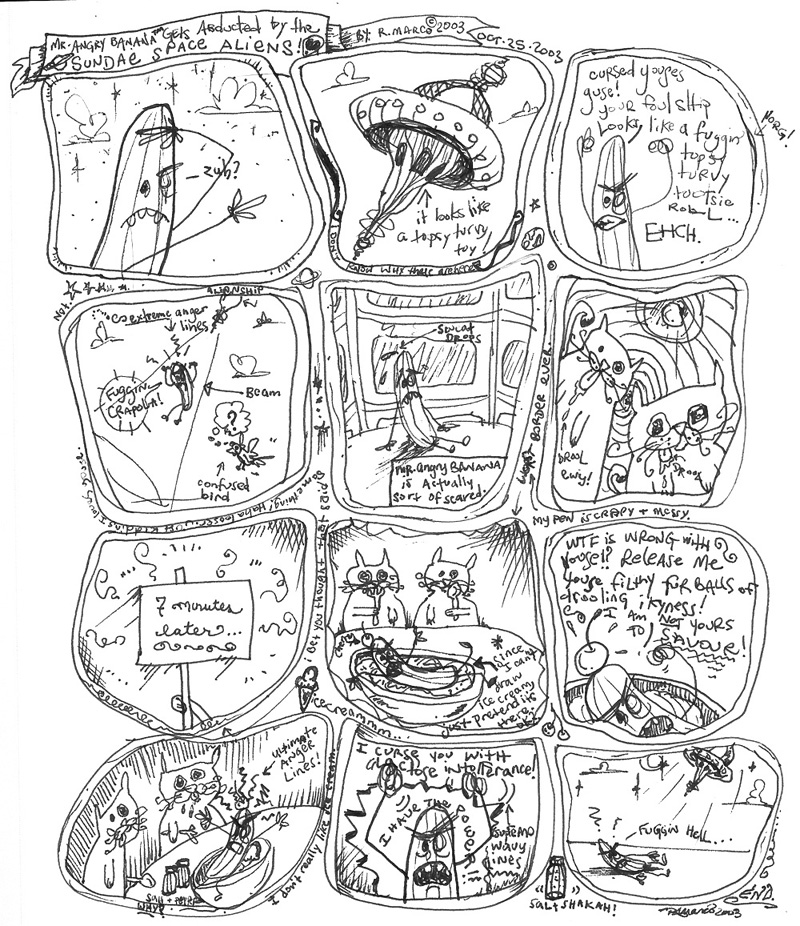 MR. ANGRY BANANA™ Gets Abducted by the
SUNDAE SPACE ALIENS!
BY: R. MARCO © 2003
OCT. 25. 2003
- zuh?
it looks like
a topsy turvy
toy!
I Don't know why these are here
cursed youses
guse!
your foul ship
looks like a fuggin
topsy
turvy
tootsie
ROLL...
EHCH.
NORG!
ALIENSHIP
extreme anger
lines
FUGGIN
CRAPOLA!
BEAM
?
confused
bird
SWEAT
DROPS
MR. ANGRY BANANA
is Actually
sort of scared.
BORDER EVER.
DROOL
ewy!
DROOL
MY PEN is CRAPY + MESSY.
7 minutes
later...
I bet you thought that said
something! Haha looser!
cherry
since
I can't
draw
ice creamy
just pretend its
there,
ok?
icecreammm...
WTF is WRONG with
youse!? RELEASE ME
youse FILTHY FURBALLS OF
drooling ikyness!
I AM NOT YOURS
TO SAVOUR!
ULTIMATE
ANGER
LINES!
SALT + PEPPER
WHY?
I don't really like ice cream.
I CURSE YOU WITH
LACTOSE intollerance!
I HAVE THE POWER!!!
SUPREMO
WAVY
LINES
"SALT SHAKAH!"
? !
FUGGIN HELL...
END.
R. Marco 2003